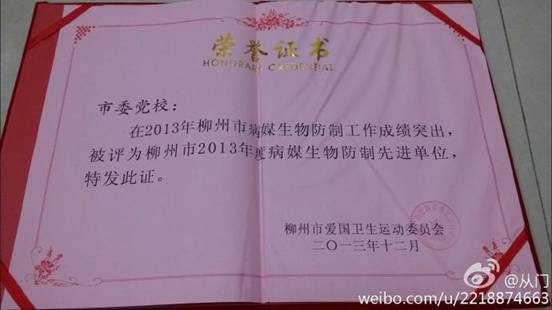 荣誉证书
HONORARY CREDENTIAL
市委党校：
在2013年柳州市病媒生物防制工作成绩突出，
被评为柳州市2013年度病媒生物防制先进单位，
特发此证。
柳州市爱国卫生运动委员会
二〇一三年十二月
@从门
weibo.com/u/2218874663